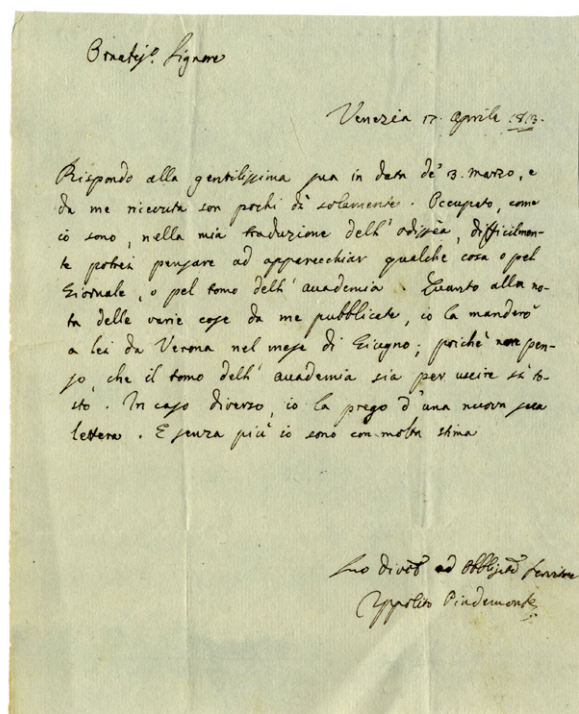 Ornatiss.º Signore
Venezia 17. Aprile 1813.
Rispondo alla gentilissima sua in data de' 3. marzo, e
da me ricevuta son pochi dì solamente. Occupato, come
io sono, nella mia traduzione dell'Odissèa, difficilmen-
te potrei pensare ad apparecchiar qualche cosa o pel
Giornale, o pel tomo dell'Accademia. Quanto alla no-
ta delle varie cose da me pubblicate, io la manderò
a lei da Verona nel mese di Giugno; poichè non pen-
so, che il tomo dell'Accademia sia per uscire sì to-
sto. In caso diverso, io la prego d'una nuova sua
lettera. E senza più io sono con molta stima
Suo divot.º ed obbligat.º servitore
Ippolito Pindemonte